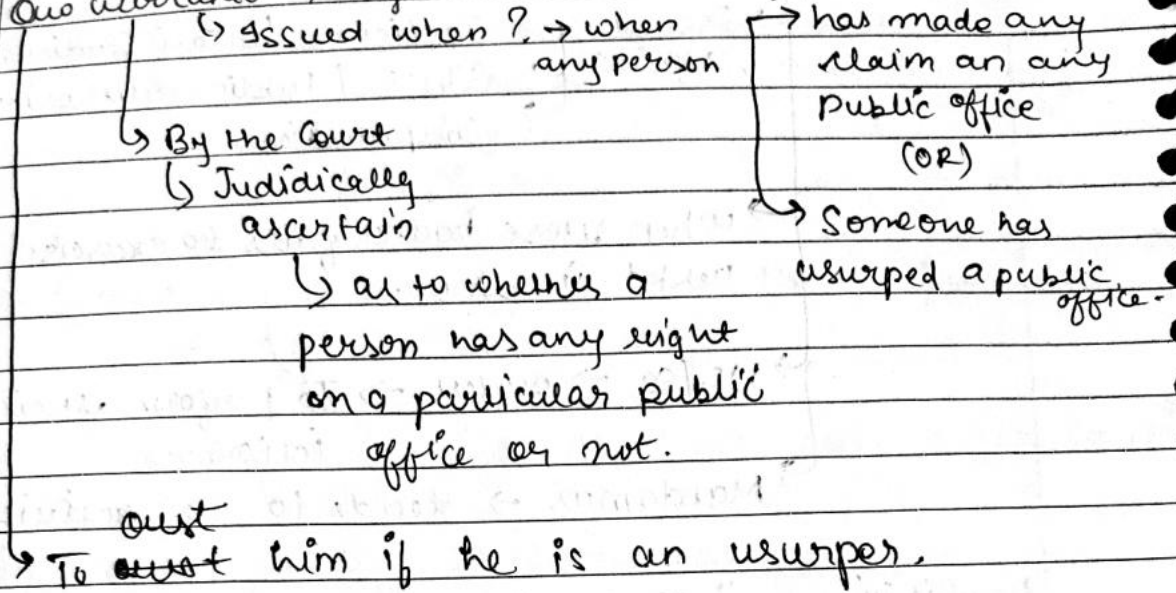 Quo
↳ Issued when ? → when any person
→ has made any claim an any Public office
(OR)
→ Someone has usurped a public office.
↳ By the Court
↳ Judidically
ascertain
↳ as to whether a
person has any right
on a particular public
office or not.
oust
→ To him if he is an usurper.